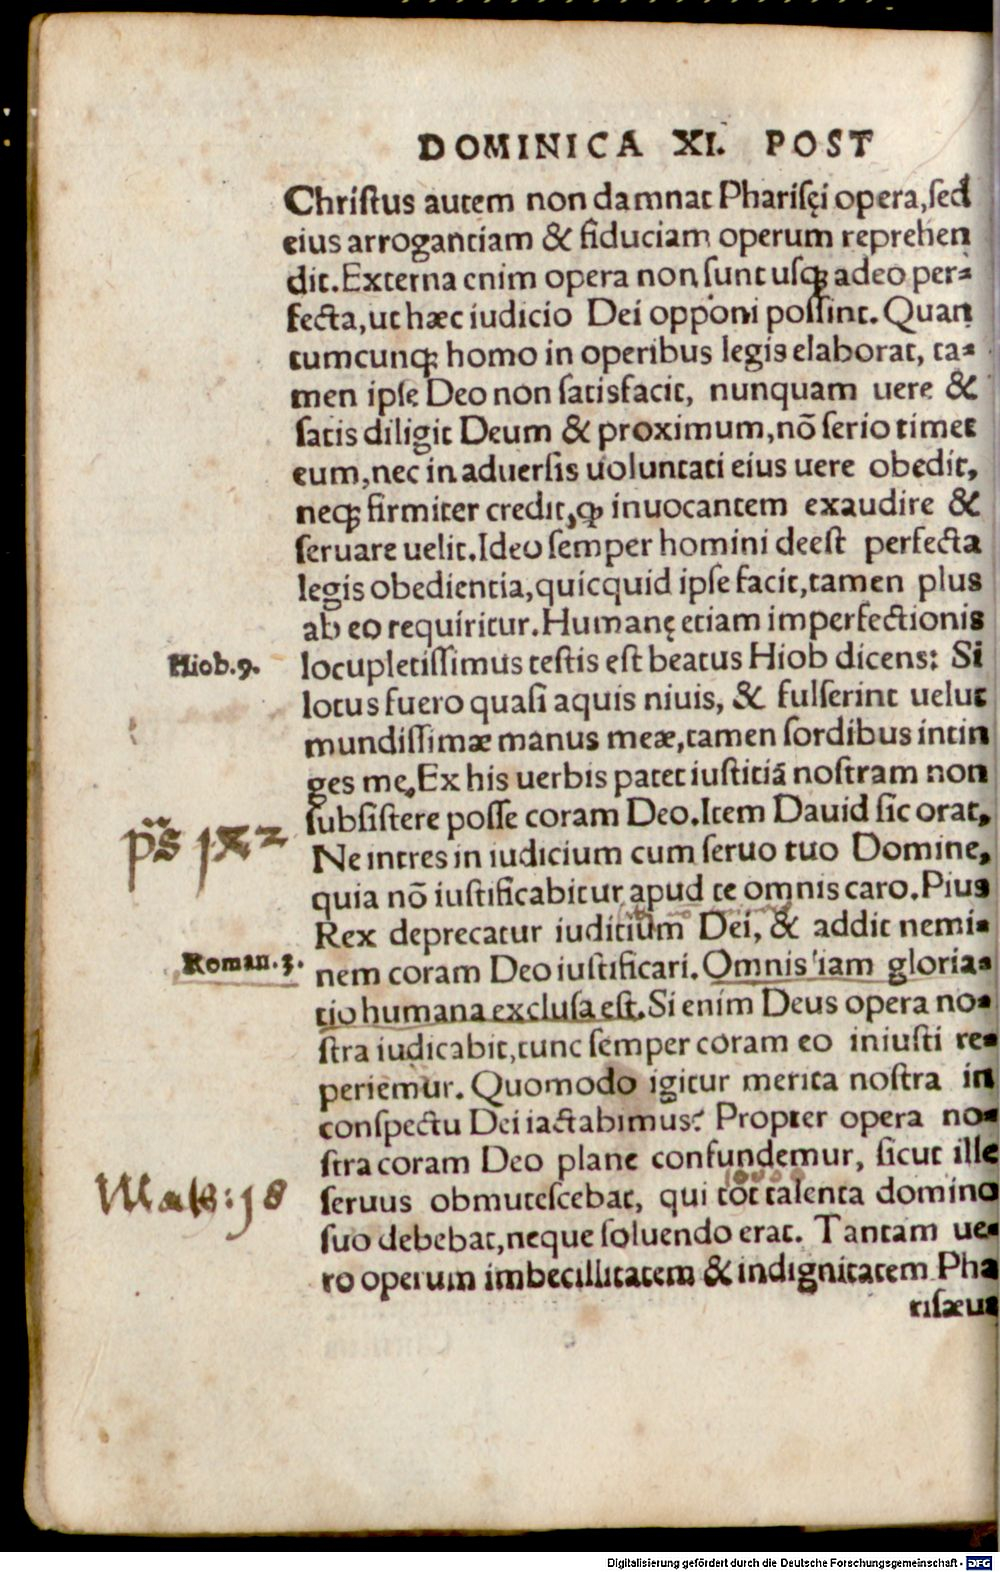 DOMINICA XI. POST
Chriſtus autem non damnat Phariſęi opera, ſed
eius arrogantiam & fiduciam operum reprehen
dit. Externa enim opera non ſunt uſqꝫ adeo per⸗
fecta, ut hæc iudicio Dei opponi poſſint. Quan
tumcunqꝫ homo in operibus legis elaborat, ta⸗
men ipſe Deo non ſatisfacit, nunquam uere &
ſatis diligit Deum & proximum, nō ſerio timet
eum, nec in aduerſis uoluntati eius uere obedit,
neqꝫ firmiter credit, ꝙ inuocantem exaudire &
ſeruare uelit. Ideo ſemper homini deeſt perfecta
legis obedientia, quicquid ipſe facit, tamen plus
ab eo requiritur. Humanę etiam imperfectionis
Hiob. 9.
locupletiſſimus teſtis eſt beatus Hiob dicens: Si
lotus fuero quaſi aquis niuis, & fulſerint uelut
mundiſſimæ manus meæ, tamen ſordibus intin
ges me. Ex his uerbis patet iuſtitiā noſtram non
ſubſiſtere poſſe coram Deo. Item Dauid ſic orat,
ps 142
Ne intres in iudicium cum ſeruo tuo Domine,
quia nō iuſtificabitur apud te omnis caro. Pius
Rex deprecatur iuditium Dei, & addit nemi⸗
Roman. 3.
nem coram Deo iuſtificari. Omnis iam gloria⸗
tio humana excluſa eſt. Si enim Deus opera no⸗
ſtra iudicabit, tunc ſemper coram eo iniuſti re⸗
periemur. Quomodo igitur merita noſtra in
conſpectu Dei iactabimus? Propter opera no⸗
ſtra coram Deo plane confundemur, ſicut ille
Mat: 18
ſeruus obmuteſcebat, qui tot talenta domino
ſuo debebat, neque ſoluendo erat. Tantam ue⸗
ro operum imbecillitatem & indignitatem Pha
riſæus
Digitalisierung gefördert durch die Deutsche Forschungsgemeinschaft - DFG